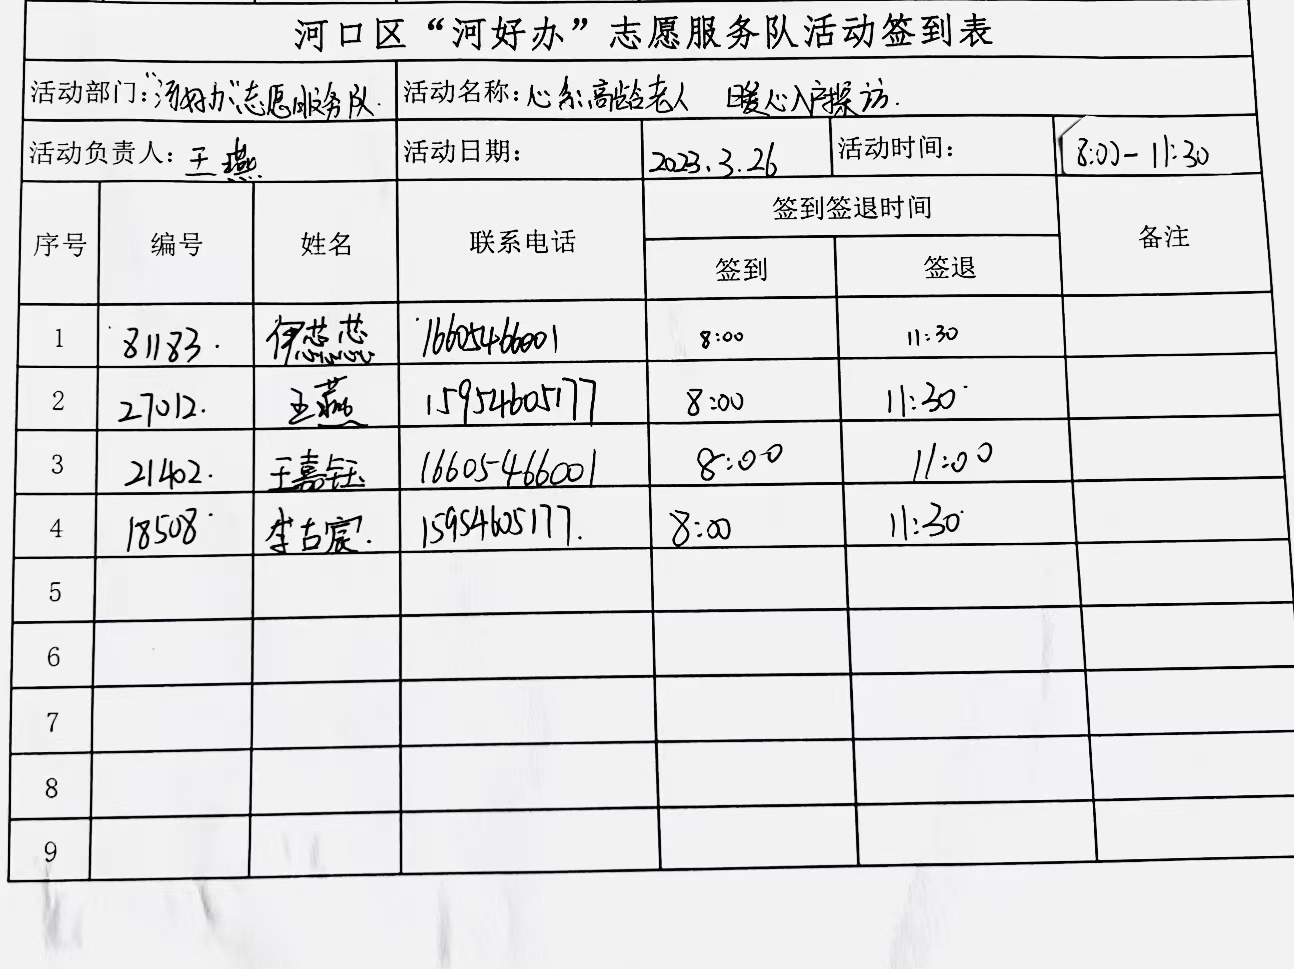 河口区“河好办”志愿服务队活动签到表
活动部门：“河好办”志愿服务队. 活动名称：心系高龄老人 暖心入户探访.
活动负责人：王燕 活动日期： 2023.3.26 活动时间： 8:00-11:30
序号 编号 姓名 联系电话 签到签退时间 备注
签到 签退
1 81183. 伊芯芯 16605466001 8:00 11:30
2 27012. 王燕 15954605177 8:00 11:30
3 21402. 王嘉钰 16605466001 8:00 11:00
4 18508 李古宸. 15954605177. 8:00 11:30
5
6
7
8
9